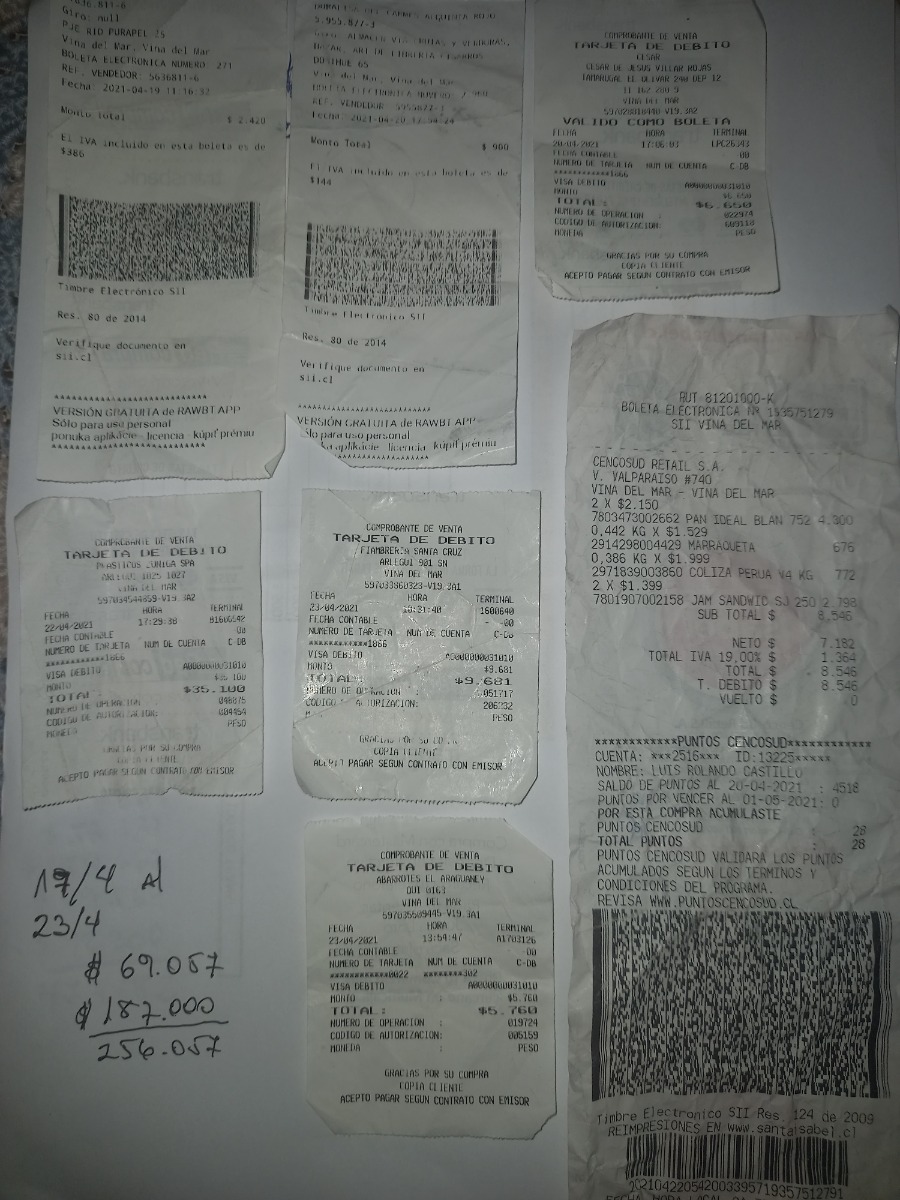 Giro: null
PJE RIO PURAPEL 25
Vina del Mar, Vina del Mar
BOLETA ELECTRONICA NUMERO: 271
REF. VENDEDOR: 5636811-6
Fecha: 2021-04-19 11:16:32
Monto Total $ 2.420
El IVA incluido en esta boleta es de
$386
Timbre Electrónico SII
Res. 80 de 2014
Verifique documento en
sii.cl
VERSIÓN GRATUITA de RAWBT APP
Sólo para uso personal
ponuka aplikácie - licencia - kúpiť prémiu
5.955.877-3
DOÑIHUE 65
Vina del Mar, Vina del Mar
REF. VENDEDOR
Fecha: 2021-04-20
Monto Total $ 900
El IVA incluido en esta boleta es de
$144
Timbre Electrónico SII
Res. 80 de 2014
Verifique documento en
sii.cl
VERSIÓN GRATUITA de RAWBT APP
Sólo para uso personal
aplikácie - licencia - kúpiť prémiu
COMPROBANTE DE VENTA
TARJETA DE DEBITO
CESAR
CESAR DE JESUS VILLAR ROJAS
TAMARUGAL EL OLIVAR 240 DEP 12
VINA DEL MAR
VALIDO COMO BOLETA
FECHA HORA TERMINAL
20/04/2021 17:06:03 LPC26343
FECHA CONTABLE 00
NUMERO DE TARJETA NUM DE CUENTA C-DB
************1866
VISA DEBITO A0000000031010
MONTO $6.650
TOTAL: $6.650
NUMERO DE OPERACION : 022974
CODIGO DE AUTORIZACION: 609118
MONEDA PESO
GRACIAS POR SU COMPRA
COPIA CLIENTE
ACEPTO PAGAR SEGUN CONTRATO CON EMISOR
RUT 81201000-K
BOLETA ELECTRONICA Nº 1935751279
SII VINA DEL MAR
CENCOSUD RETAIL S.A.
V. VALPARAISO #740
VINA DEL MAR - VINA DEL MAR
2 X $2.150
7803473002662 PAN IDEAL BLAN 752 4.300
0,442 KG X $1.529
2914298004429 MARRAQUETA 676
0,386 KG X $1.999
2971839003860 COLIZA PERUA V4 KG 772
2 X $1.399
7801907002158 JAM SANDWIC SJ 250 2.798
SUB TOTAL $ 8.546
NETO $ 7.182
TOTAL IVA 19,00% $ 1.364
TOTAL $ 8.546
T. DEBITO $ 8.546
VUELTO $ 0
************PUNTOS CENCOSUD************
CUENTA: ***2516*** ID:13225*****
NOMBRE: LUIS ROLANDO CASTILLO
SALDO DE PUNTOS AL 20-04-2021 : 4518
PUNTOS POR VENCER AL 01-05-2021: 0
POR ESTA COMPRA ACUMULASTE
PUNTOS CENCOSUD : 28
TOTAL PUNTOS : 28
PUNTOS CENCOSUD VALIDARA LOS PUNTOS
ACUMULADOS SEGUN LOS TERMINOS Y
CONDICIONES DEL PROGRAMA.
REVISA WWW.PUNTOSCENCOSUD.CL
Timbre Electronico SII Res. 124 de 2009
REIMPRESIONES EN www.santaisabel.cl
COMPROBANTE DE VENTA
TARJETA DE DEBITO
PLASTICOS ZUNIGA SPA
ARLEGUI 1025 1027
VINA DEL MAR
597034544859-V19.3A2
FECHA HORA TERMINAL
22/04/2021 17:29:38
FECHA CONTABLE 00
NUMERO DE TARJETA NUM DE CUENTA C-DB
************1866
VISA DEBITO A0000000031010
MONTO $35.100
TOTAL: $35.100
NUMERO DE OPERACION 048875
CODIGO DE AUTORIZACION: 004454
MONEDA PESO
GRACIAS POR SU COMPRA
COPIA CLIENTE
ACEPTO PAGAR SEGUN CONTRATO CON EMISOR
COMPROBANTE DE VENTA
TARJETA DE DEBITO
FIAMBRERIA SANTA CRUZ
ARLEGUI 901 SN
VINA DEL MAR
597033960323-V19.3A1
FECHA HORA TERMINAL
23/04/2021 10:31:40 1600640
FECHA CONTABLE - -00
NUMERO DE TARJETA NUM DE CUENTA C-DB
************1866
VISA DEBITO A0000000031010
MONTO $9.681
TOTAL: $9.681
NUMERO DE OPERACION : 051717
CODIGO AUTORIZACION: 206332
PESO
GRACIAS POR SU
COPIA CLIENTE
ACEPTO PAGAR SEGUN CONTRATO CON EMISOR
COMPROBANTE DE VENTA
TARJETA DE DEBITO
ABARROTES EL ARAGUANEY
QUI 0163
VINA DEL MAR
597035509445-V19.3A1
FECHA HORA TERMINAL
23/04/2021 13:54:47 A1703126
FECHA CONTABLE 00
NUMERO DE TARJETA NUM DE CUENTA C-DB
************0022 ********302
VISA DEBITO A0000000031010
MONTO : $5.760
TOTAL: $5.760
NUMERO DE OPERACION : 019724
CODIGO DE AUTORIZACION: 005159
MONEDA : PESO
GRACIAS POR SU COMPRA
COPIA CLIENTE
ACEPTO PAGAR SEGUN CONTRATO CON EMISOR
17/4 al
23/4
$ 69.057
$ 187.000
256.057